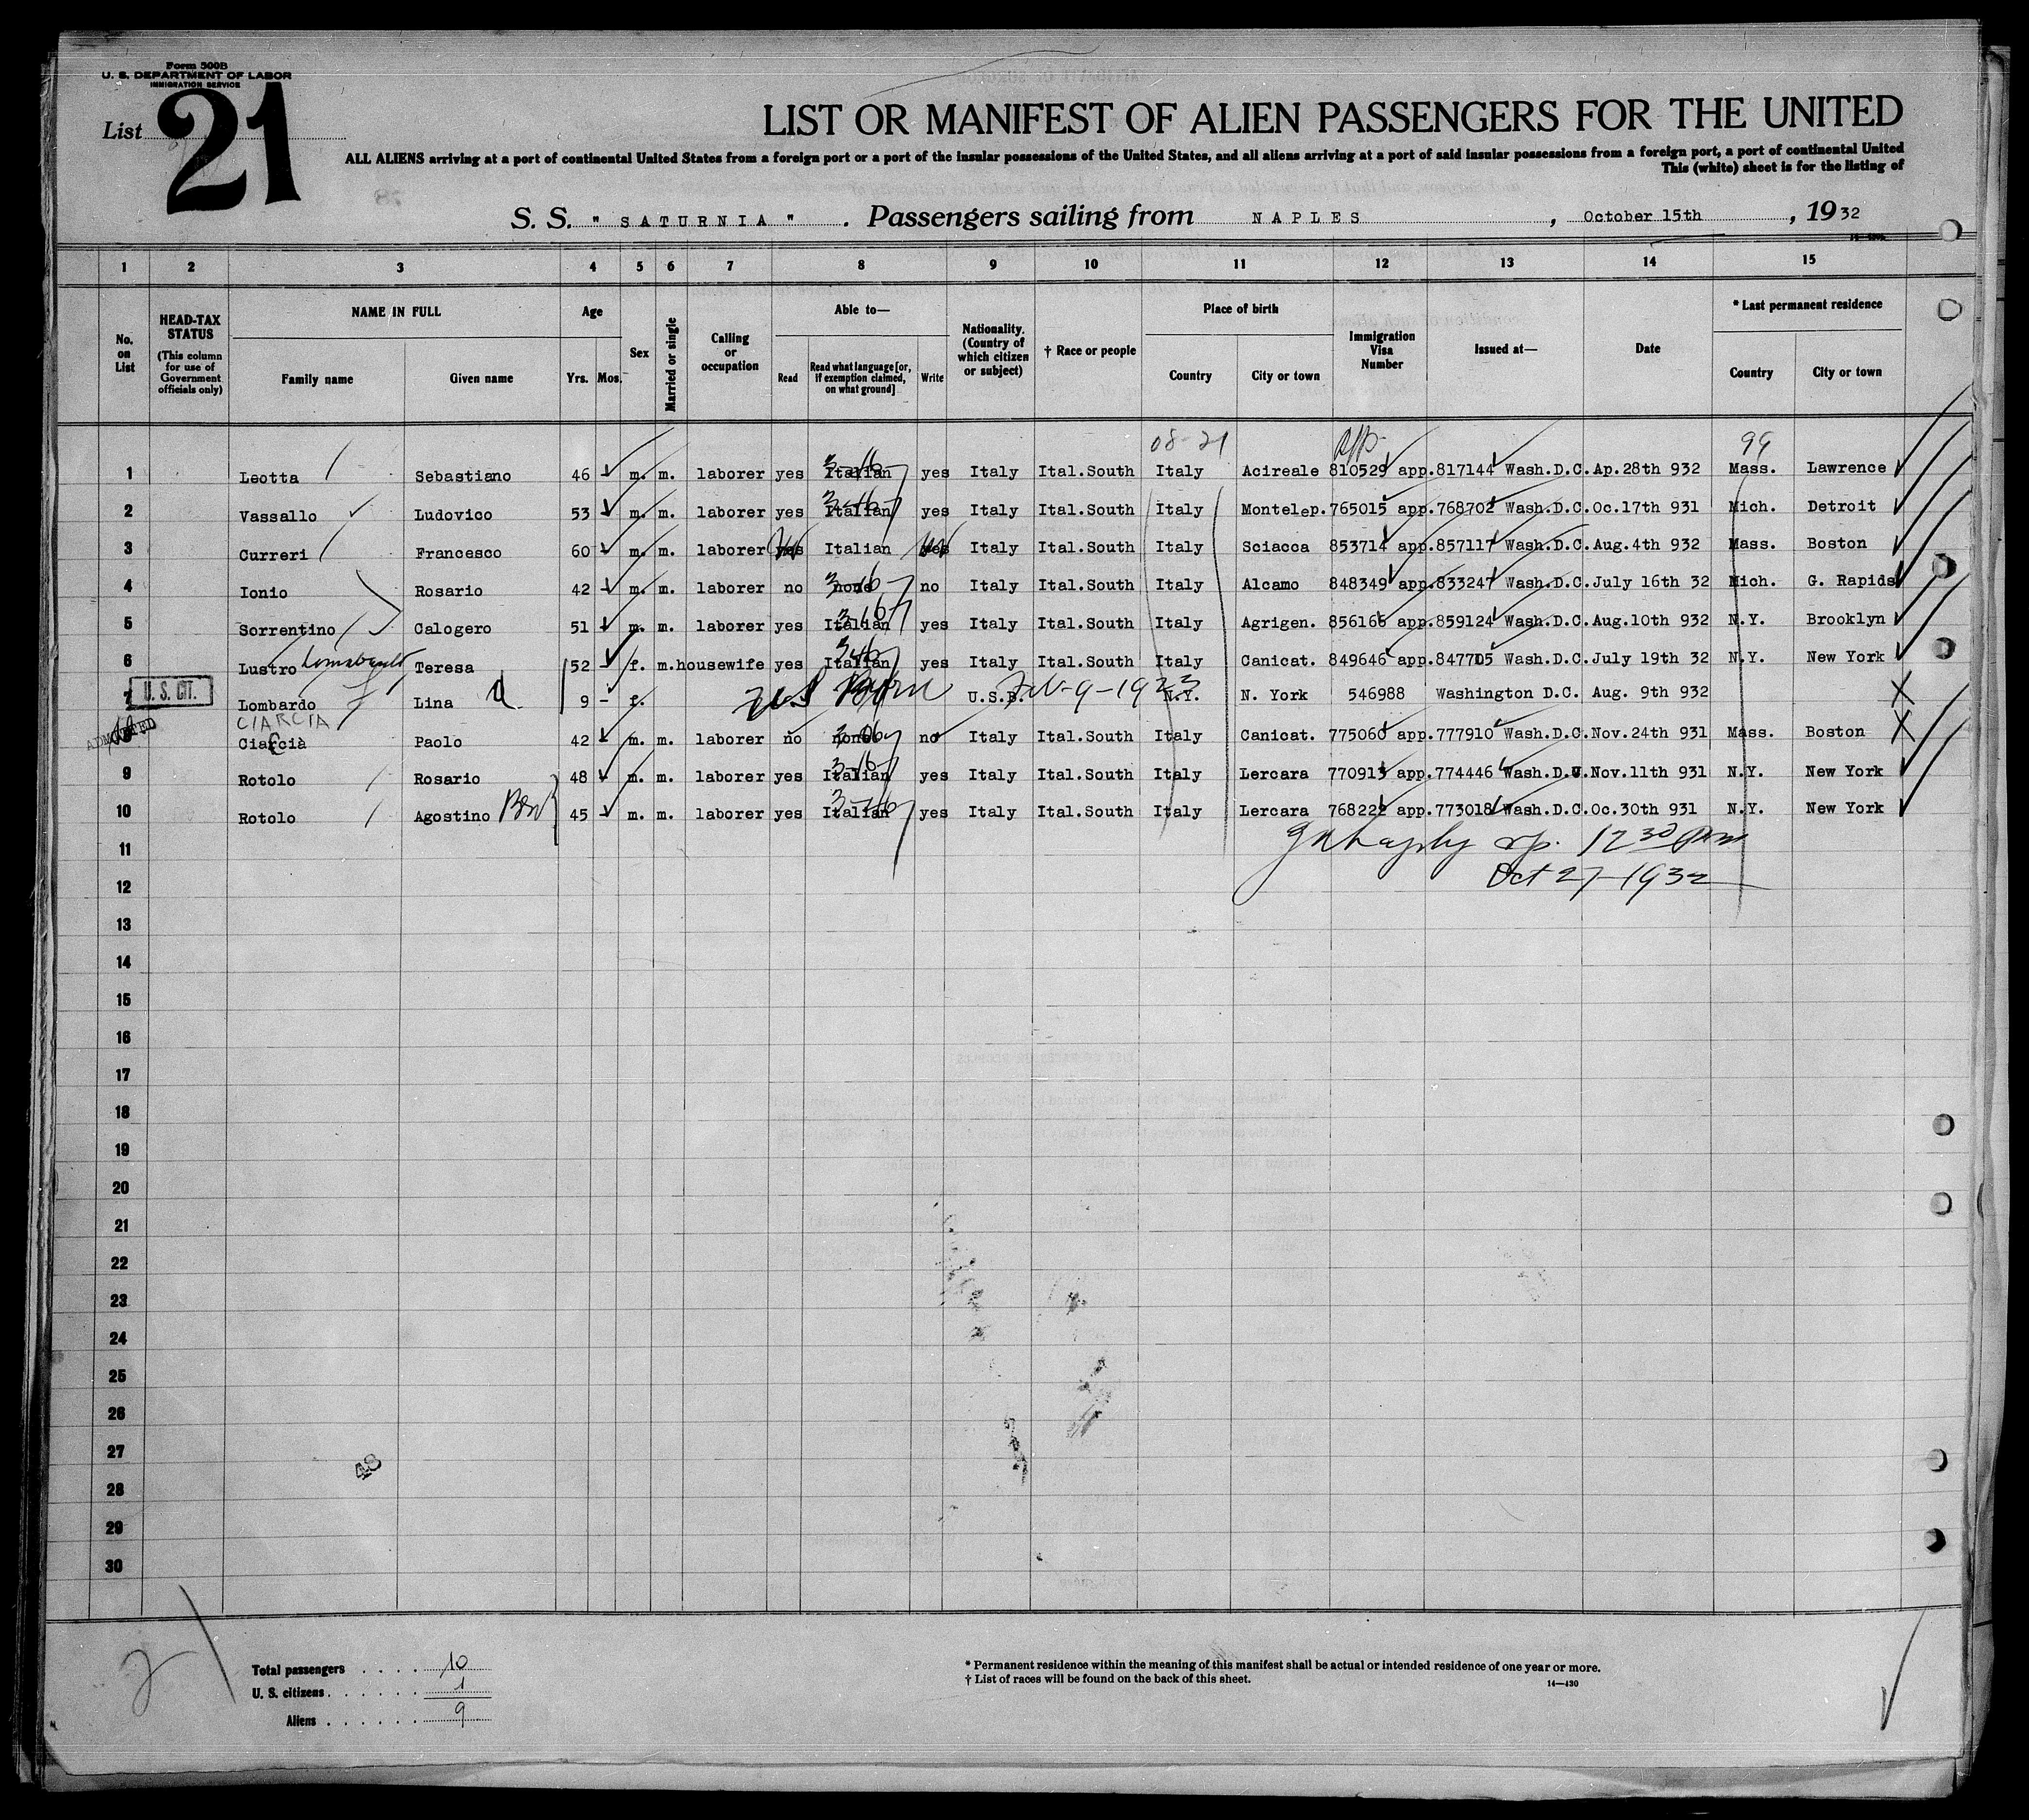 Form 500B
U. S. DEPARTMENT OF LABOR
IMMIGRATION SERVICE
List 21
LIST OR MANIFEST OF ALIEN PASSENGERS FOR THE UNITED
ALL ALIENS arriving at a port of continental United States from a foreign port or a port of the insular possessions of the United States, and all aliens arriving at a port of said insular possessions from a foreign port, a port of continental United
This (white) sheet is for the listing of
S. S. " SATURNIA " . Passengers sailing from NAPLES , October 15th , 1932
1 2 3 4 5 6 7 8 9 10 11 12 13 14 15
No. on List
HEAD-TAX STATUS (This column for use of Government officials only)
NAME IN FULL
Family name Given name
Age
Yrs. Mos.
Sex
Married or single
Calling or occupation
Able to—
Read Read what language [or, if exemption claimed, on what ground] Write
Nationality. (Country of which citizen or subject)
† Race or people
Place of birth
Country City or town
Immigration Visa Number
Issued at—
Date
* Last permanent residence
Country City or town
08-21 99
1 Leotta Sebastiano 46 - m. m. laborer yes Italian yes Italy Ital.South Italy Acireale 810529 app.817144 Wash.D.C. Ap.28th 932 Mass. Lawrence
2 Vassallo Ludovico 53 - m. m. laborer yes Italian yes Italy Ital.South Italy Montelep. 765015 app.768702 Wash.D.C. Oc.17th 931 Mich. Detroit
3 Curreri Francesco 60 - m. m. laborer yes Italian yes Italy Ital.South Italy Sciacca 853714 app.857117 Wash.D.C. Aug.4th 932 Mass. Boston
4 Ionio Rosario 42 - m. m. laborer no none no Italy Ital.South Italy Alcamo 848349 app.833247 Wash.D.C. July 16th 32 Mich. G. Rapids
5 Sorrentino Calogero 51 - m. m. laborer yes Italian yes Italy Ital.South Italy Agrigen. 856166 app.859124 Wash.D.C. Aug.10th 932 N.Y. Brooklyn
6 Lustro Teresa 52 - f. m. housewife yes Italian yes Italy Ital.South Italy Canicat. 849646 app.847705 Wash.D.C. July 19th 32 N.Y. New York
7 U. S. CIT. Lombardo Lina 9 - f. U.S. Born U.S.B. Feb-9-1923 N.Y. N. York 546988 Washington D.C. Aug. 9th 932 X
CIARCIA
8 ADMITTED Ciarcia Paolo 42 - m. m. laborer no none no Italy Ital.South Italy Canicat. 775060 app.777910 Wash.D.C. Nov.24th 931 Mass. Boston X
9 Rotolo Rosario 48 - m. m. laborer yes Italian yes Italy Ital.South Italy Lercara 770913 app.774446 Wash.D.C. Nov.11th 931 N.Y. New York
10 Rotolo Agostino 45 - m. m. laborer yes Italian yes Italy Ital.South Italy Lercara 768222 app.773018 Wash.D.C. Oc.30th 931 N.Y. New York
11 12 30 pm
12 Oct 27-1932
13
14
15
16
17
18
19
20
21
22
23
24
25
26
27
28
29
30
48
Total passengers . . . . 10
U. S. citizens . . . . . . 1
Aliens . . . . . . 9
* Permanent residence within the meaning of this manifest shall be actual or intended residence of one year or more.
† List of races will be found on the back of this sheet.
14—430